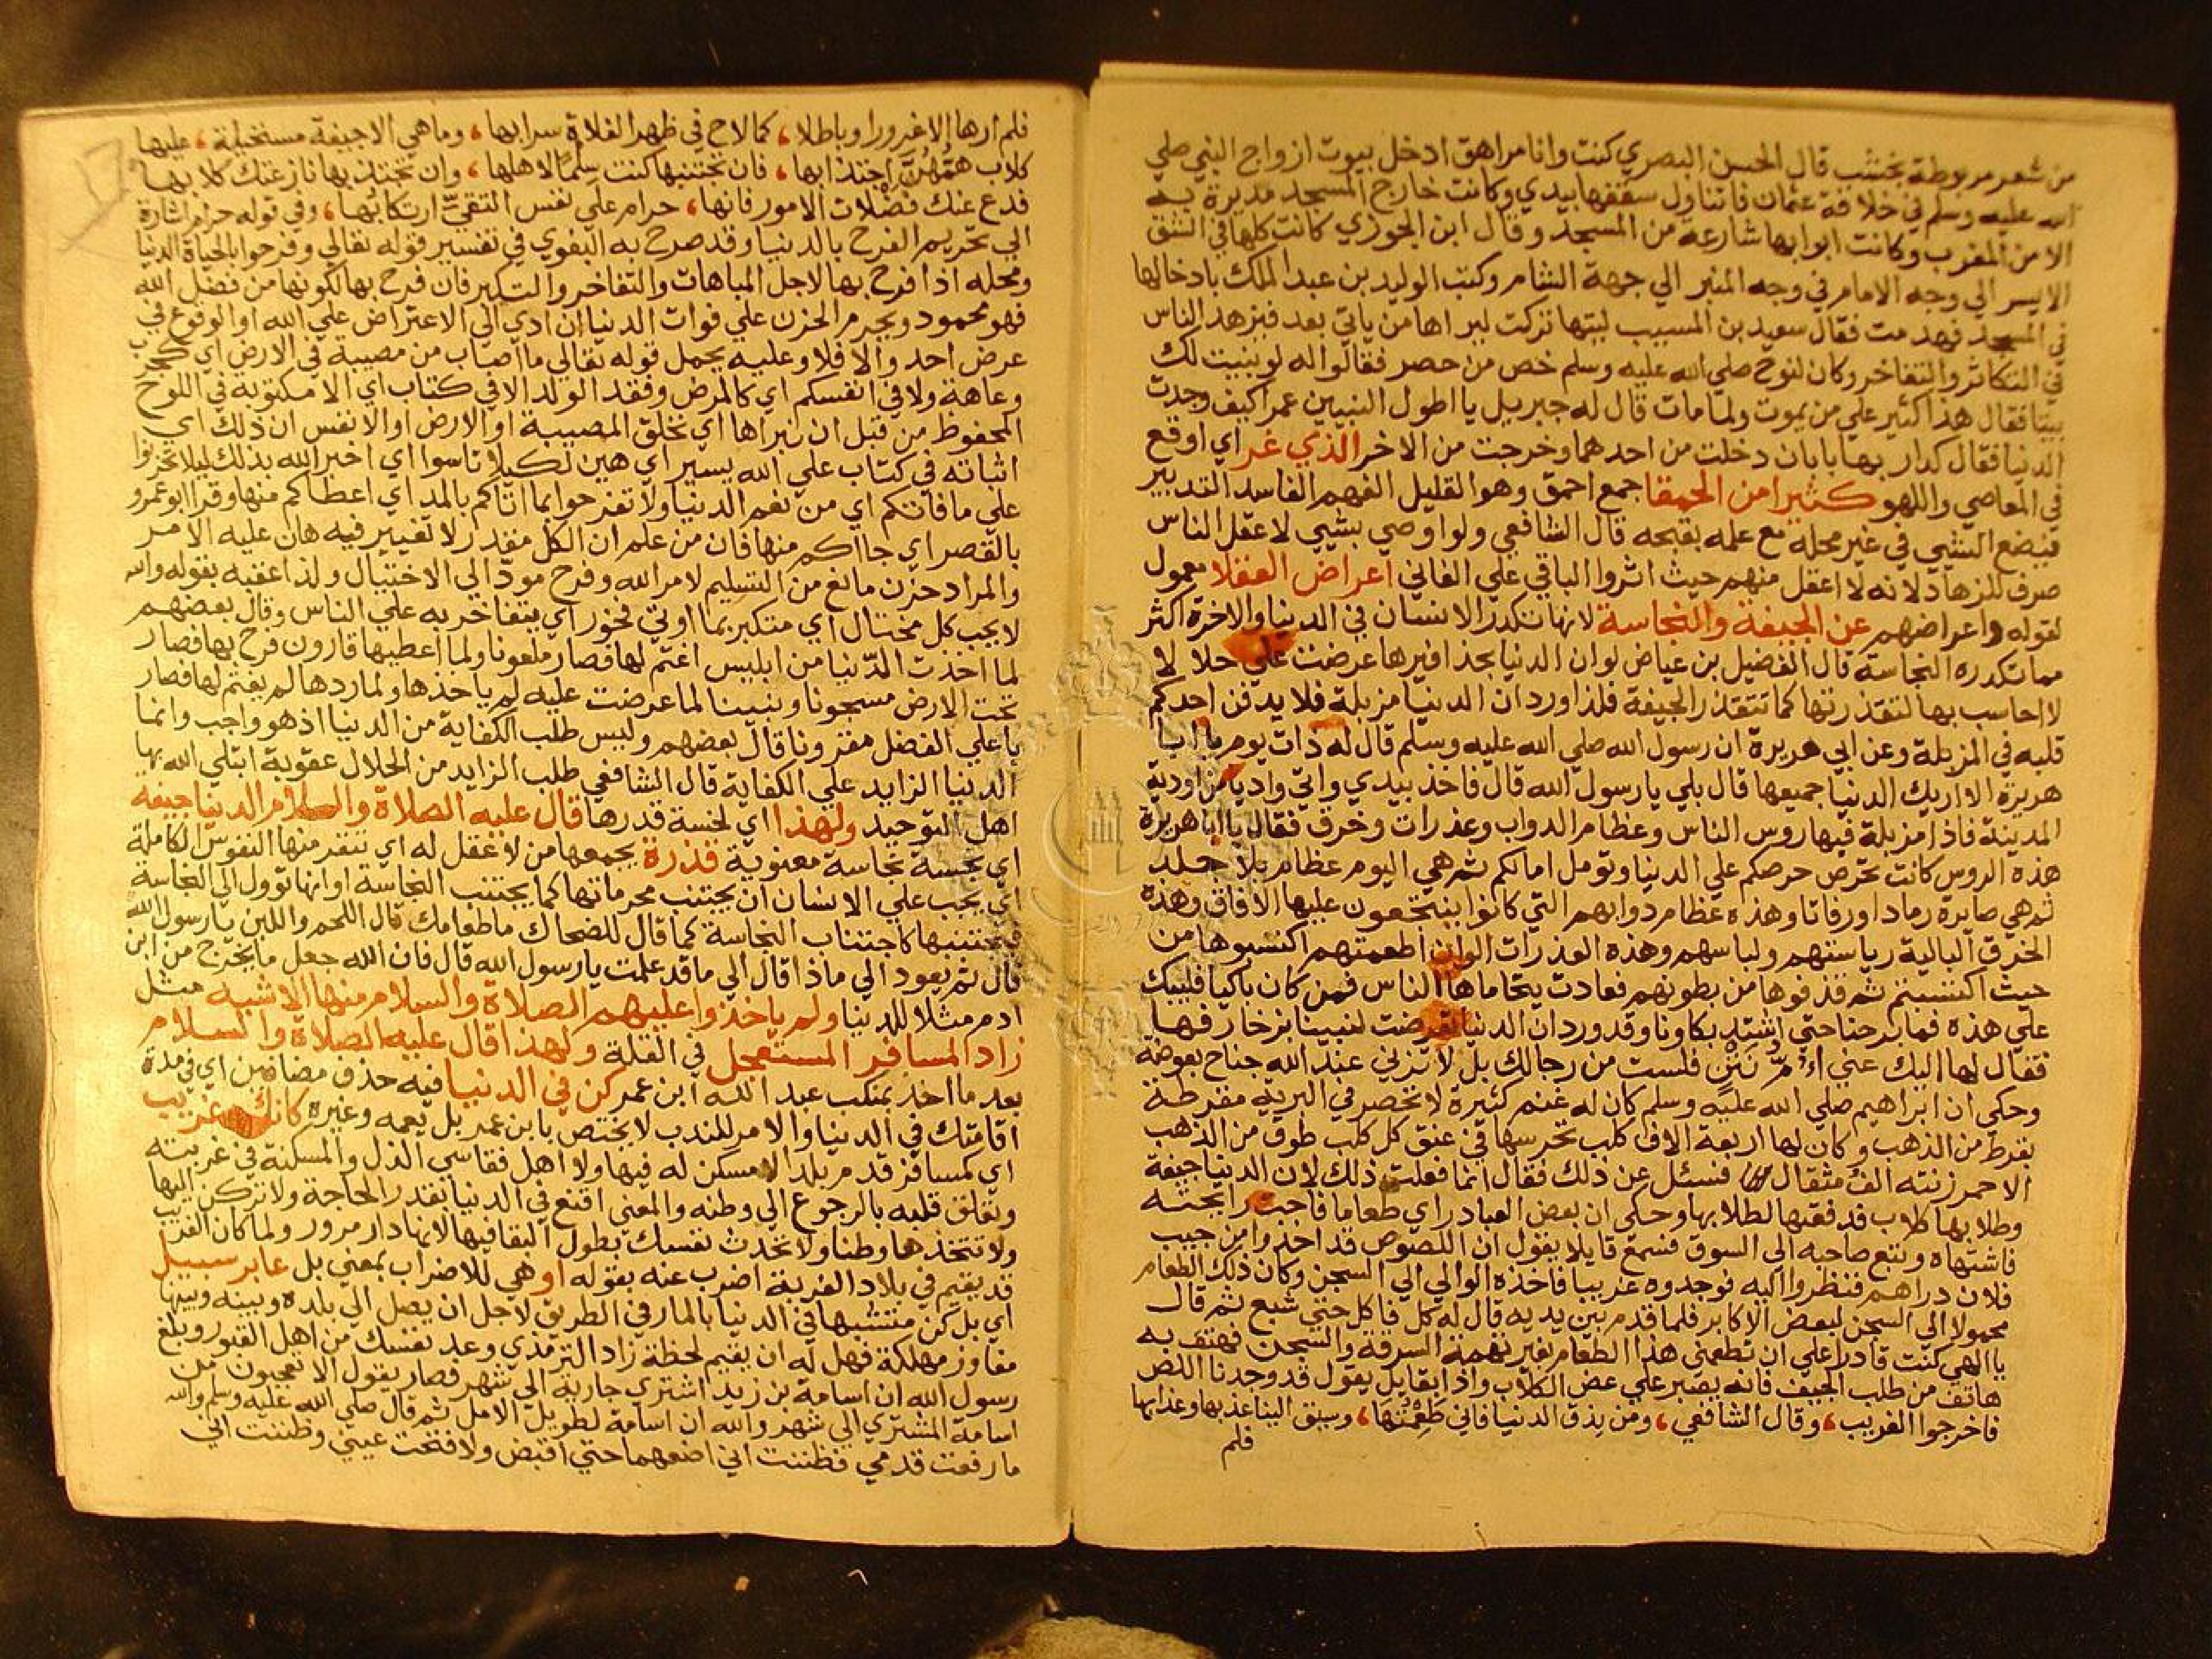 من شعر مربوطة بخشب قال الحسن البصري كنت وانا مراهق ادخل بيوت ازواج النبي صلي
الله عليه وسلم في خلافة عثمان فاتناول سقفها بيدي وكانت خارج المسجد مديرة به
الا من المغرب وكانت ابوابها شارعة من المسجد وقال ابن الجوزي كانت كلها في الشق
الايسر الي وجه الامام في وجه المنبر الي جهة الشام وكتب الوليد بن عبد الملك بادخالها
في المسجد فهدمت فقال سعيد بن المسيب ليتها تركت ليراها من ياتي بعد فيزهد الناس
في التكاثر والتفاخر وكان لنوح صلي الله عليه وسلم خص من حصر فقالوا له لو بنيت لك
بيتا فقال هذا كثير علي من يموت ولما مات قال له جبريل يا اطول النبيين عمرا كيف وجدت
الدنيا فقال كدار بها بابان دخلت من احدهما وخرجت من الاخر الذي غر اي اوقع
في المعاصي واللهو كثيرا من الحمقا جمع احمق وهو القليل الفهم الفاسد التدبير
فيضع الشي في غير محله مع علمه بقبحه قال الشافعي ولو اوصي بشي لاعقل الناس
صرف للزهاد لانه لا اعقل منهم حيث اثروا الباقي علي الفاني اعراض العقلا معمول
لقوله واعراضهم عن الجيفة والنجاسة لانها تكدر الانسان في الدنيا والاخرة اكثر
مما تكدره النجاسة قال الفضيل بن عياض لو ان الدنيا بحذافيرها عرضت علي حلالا
لا احاسب بها لتقذرتها كما تتقذر الجيفة فلذا ورد ان الدنيا مزبلة فلا يدفن احدكم
قلبه في المزبلة وعن ابي هريرة ان رسول الله صلي الله عليه وسلم قال له ذات يوم يا ابا
هريرة الا اريك الدنيا جميعها قال بلي يا رسول الله قال فاخذ بيدي واتي واديا من اودية
المدينة فاذا مزبلة فيها روس الناس وعظام الدواب وعذرات وخرق فقال يا ابا هريرة
هذه الروس كانت تحرص حرصكم علي الدنيا وتومل امالكم ثم هي اليوم عظام بلا جلد
ثم هي صايرة رمادا ورفاتا وهذه عظام دوابهم التي كانوا ينتجعون عليها الافاق وهذه
الخرق البالية رياستهم ولباسهم وهذه العذرات الوان اطعمتهم اكتسبوها من
حيث اكتسبتم ثم قذفوها من بطونهم فعادت يتحاماها الناس فمن كان باكيا فليبك
علي هذه فما برحنا حتي اشتد بكاونا وقد ورد ان الدنيا تعرضت لنبينا بزخارفها
فقال لها اليك عني فلست من رجالك بل لا تزني عند الله جناح بعوضة
وحكي ان ابراهيم صلي الله عليه وسلم كان له غنم كثيرة لا تحصر في البرية
من الذهب وكان لها اربعة الاف كلب تحرسها في عنق كل كلب طوق من الذهب
الاحمر زنته الف مثقال فسئل عن ذلك فقال انما فعلت ذلك لان الدنيا جيفة
وطلابها كلاب فدفعتها لطلابها وحكي ان بعض العباد راي طعاما فاحب رايحته
فاشتهاه وتبع صاحبه الي السوق فسمع قايلا يقول ان اللصوص قد اخذوا من جيب
فلان دراهم فنظروا اليه فوجدوه غريبا فاخذه الوالي الي السجن وكان ذلك الطعام
محمولا الي السجن لبعض الاكابر فلما قدم بين يديه قال له كل فاكل حتي شبع ثم قال
يا الهي كنت قادرا علي ان تطعمني هذا الطعام بغير تهمة السرقة والسجن فهتف به
هاتف من طلب الجيف فانه يصبر علي عض الكلاب واذا بقايل يقول قد وجدنا اللص
فاخرجوا الغريب، وقال الشافعي، ومن يذق الدنيا فاني طعمتها، وسيق الينا عذبها وعذابها
فلم
فلم ارها الا غرورا وباطلا، كما لاح في ظهر الفلاة سرابها، وما هي الا جيفة مستحيلة، عليها
كلاب همهن اجتذابها، فان تجتنبها كنت سلما لاهلها، وان تجتذبها نازعتك كلابها
فدع عنك فضلات الامور فانها، حرام علي نفس التقي ارتكابها، وفي قوله حرام اشارة
الي تحريم الفرح بالدنيا وقد صرح به البغوي في تفسير قوله تعالي وفرحوا بالحياة الدنيا
ومحله اذا فرح بها لاجل المباهات والتفاخر والتكبر فان فرح بها لكونها من فضل الله
فهو محمود ويحرم الحزن علي فوات الدنيا ان ادي الي الاعتراض علي الله او الوقوع في
عرض احد والا فلا وعليه يحمل قوله تعالي ما اصاب من مصيبة في الارض اي
وعاهة ولا في انفسكم اي كالمرض وفقد الولد الا في كتاب اي الا مكتوبة في اللوح
المحفوظ من قبل ان نبراها اي نخلق المصيبة او الارض او الانفس ان ذلك اي
اثباته في كتاب علي الله يسير اي هين لكيلا تاسوا اي اخبر الله بذلك ليلا تحزنوا
علي ما فاتكم اي من نعم الدنيا ولا تفرحوا بما اتاكم بالمد اي اعطاكم منها وقرا ابو عمرو
بالقصر اي جاكم منها فان من علم ان الكل مقدر لا تغيير فيه هان عليه الامر
والمراد حزن مانع من التسليم لامر الله وفرح مود الي الاختيال ولذا عقبه بقوله والله
لا يحب كل مختال اي متكبر بما اوتي فخور اي يتفاخر به علي الناس وقال بعضهم
لما اخذت الدنيا من ابليس اغتم لها فصار ملعونا ولما اعطيها قارون فرح بها فصار
تحت الارض مسجونا ونبينا لما عرضت عليه لم ياخذها ولما ردها لم يغتم لها فصار
باعلي الفضل مقرونا قال بعضهم وليس طلب الكفاية من الدنيا اذ هو واجب وانما
الدنيا الزايد علي الكفاية قال الشافعي طلب الزايد من الحلال عقوبة ابتلي الله بها
اهل التوحيد ولهذا اي لخسة قدرها قال عليه الصلاة والسلام الدنيا جيفة
اي نجسة نجاسة معنوية قذرة يجمعها من لا عقل له اي تنفر منها النفوس الكاملة
اي يجب علي الانسان ان يجتنب محرماتها كما يجتنب النجاسة او انها توول الي النجاسة
فيجتنبها كاجتناب النجاسة كما قال للضحاك ما طعامك قال اللحم واللبن يا رسول الله
قال ثم يعود الي ماذا قال الي ما قد علمت يا رسول الله قال فان الله جعل ما يخرج من ابن
ادم مثلا للدنيا ولم ياخذوا عليهم الصلاة والسلام منها الا شبه مثل
زاد المسافر المستعجل في القلة ولهذا قال عليه الصلاة والسلام
بعد ما اخذ بمنكب عبد الله ابن عمر كن في الدنيا فيه حذف مضاف اي في مدة
اقامتك في الدنيا والامر للندب لا يختص بابن عمر بل يعمه وغيره كانك غريب
اي كمسافر قدم بلدا لا مسكن له فيها ولا اهل فقاسي الذل والمسكنة في غربته
وتعلق قلبه بالرجوع الي وطنه والمعني اقنع في الدنيا بقدر الحاجة ولا تركن اليها
ولا تتخذها وطنا ولا تحدث نفسك بطول البقا فيها لانها دار مرور ولما كان الغريب
قد يقيم في بلاد الغربة اضرب عنه بقوله او هي للاضراب بمعني بل عابر سبيل
اي بل كن متشبها في الدنيا بالمار في الطريق لاجل ان يصل الي بلده وبينه وبينها
مفاوز مهلكة فهل له ان يقيم لحظة زاد الترمذي وعد نفسك من اهل القبور وبلغ
رسول الله ان اسامة بن زيد اشتري جارية الي شهر فصار يقول الا تعجبون من
اسامة المشتري الي شهر والله ان اسامة لطويل الامل ثم قال صلي الله عليه وسلم والله
ما رفعت قدمي فظننت اني اضعهما حتي اقبض ولا فتحت عيني وظننت اني